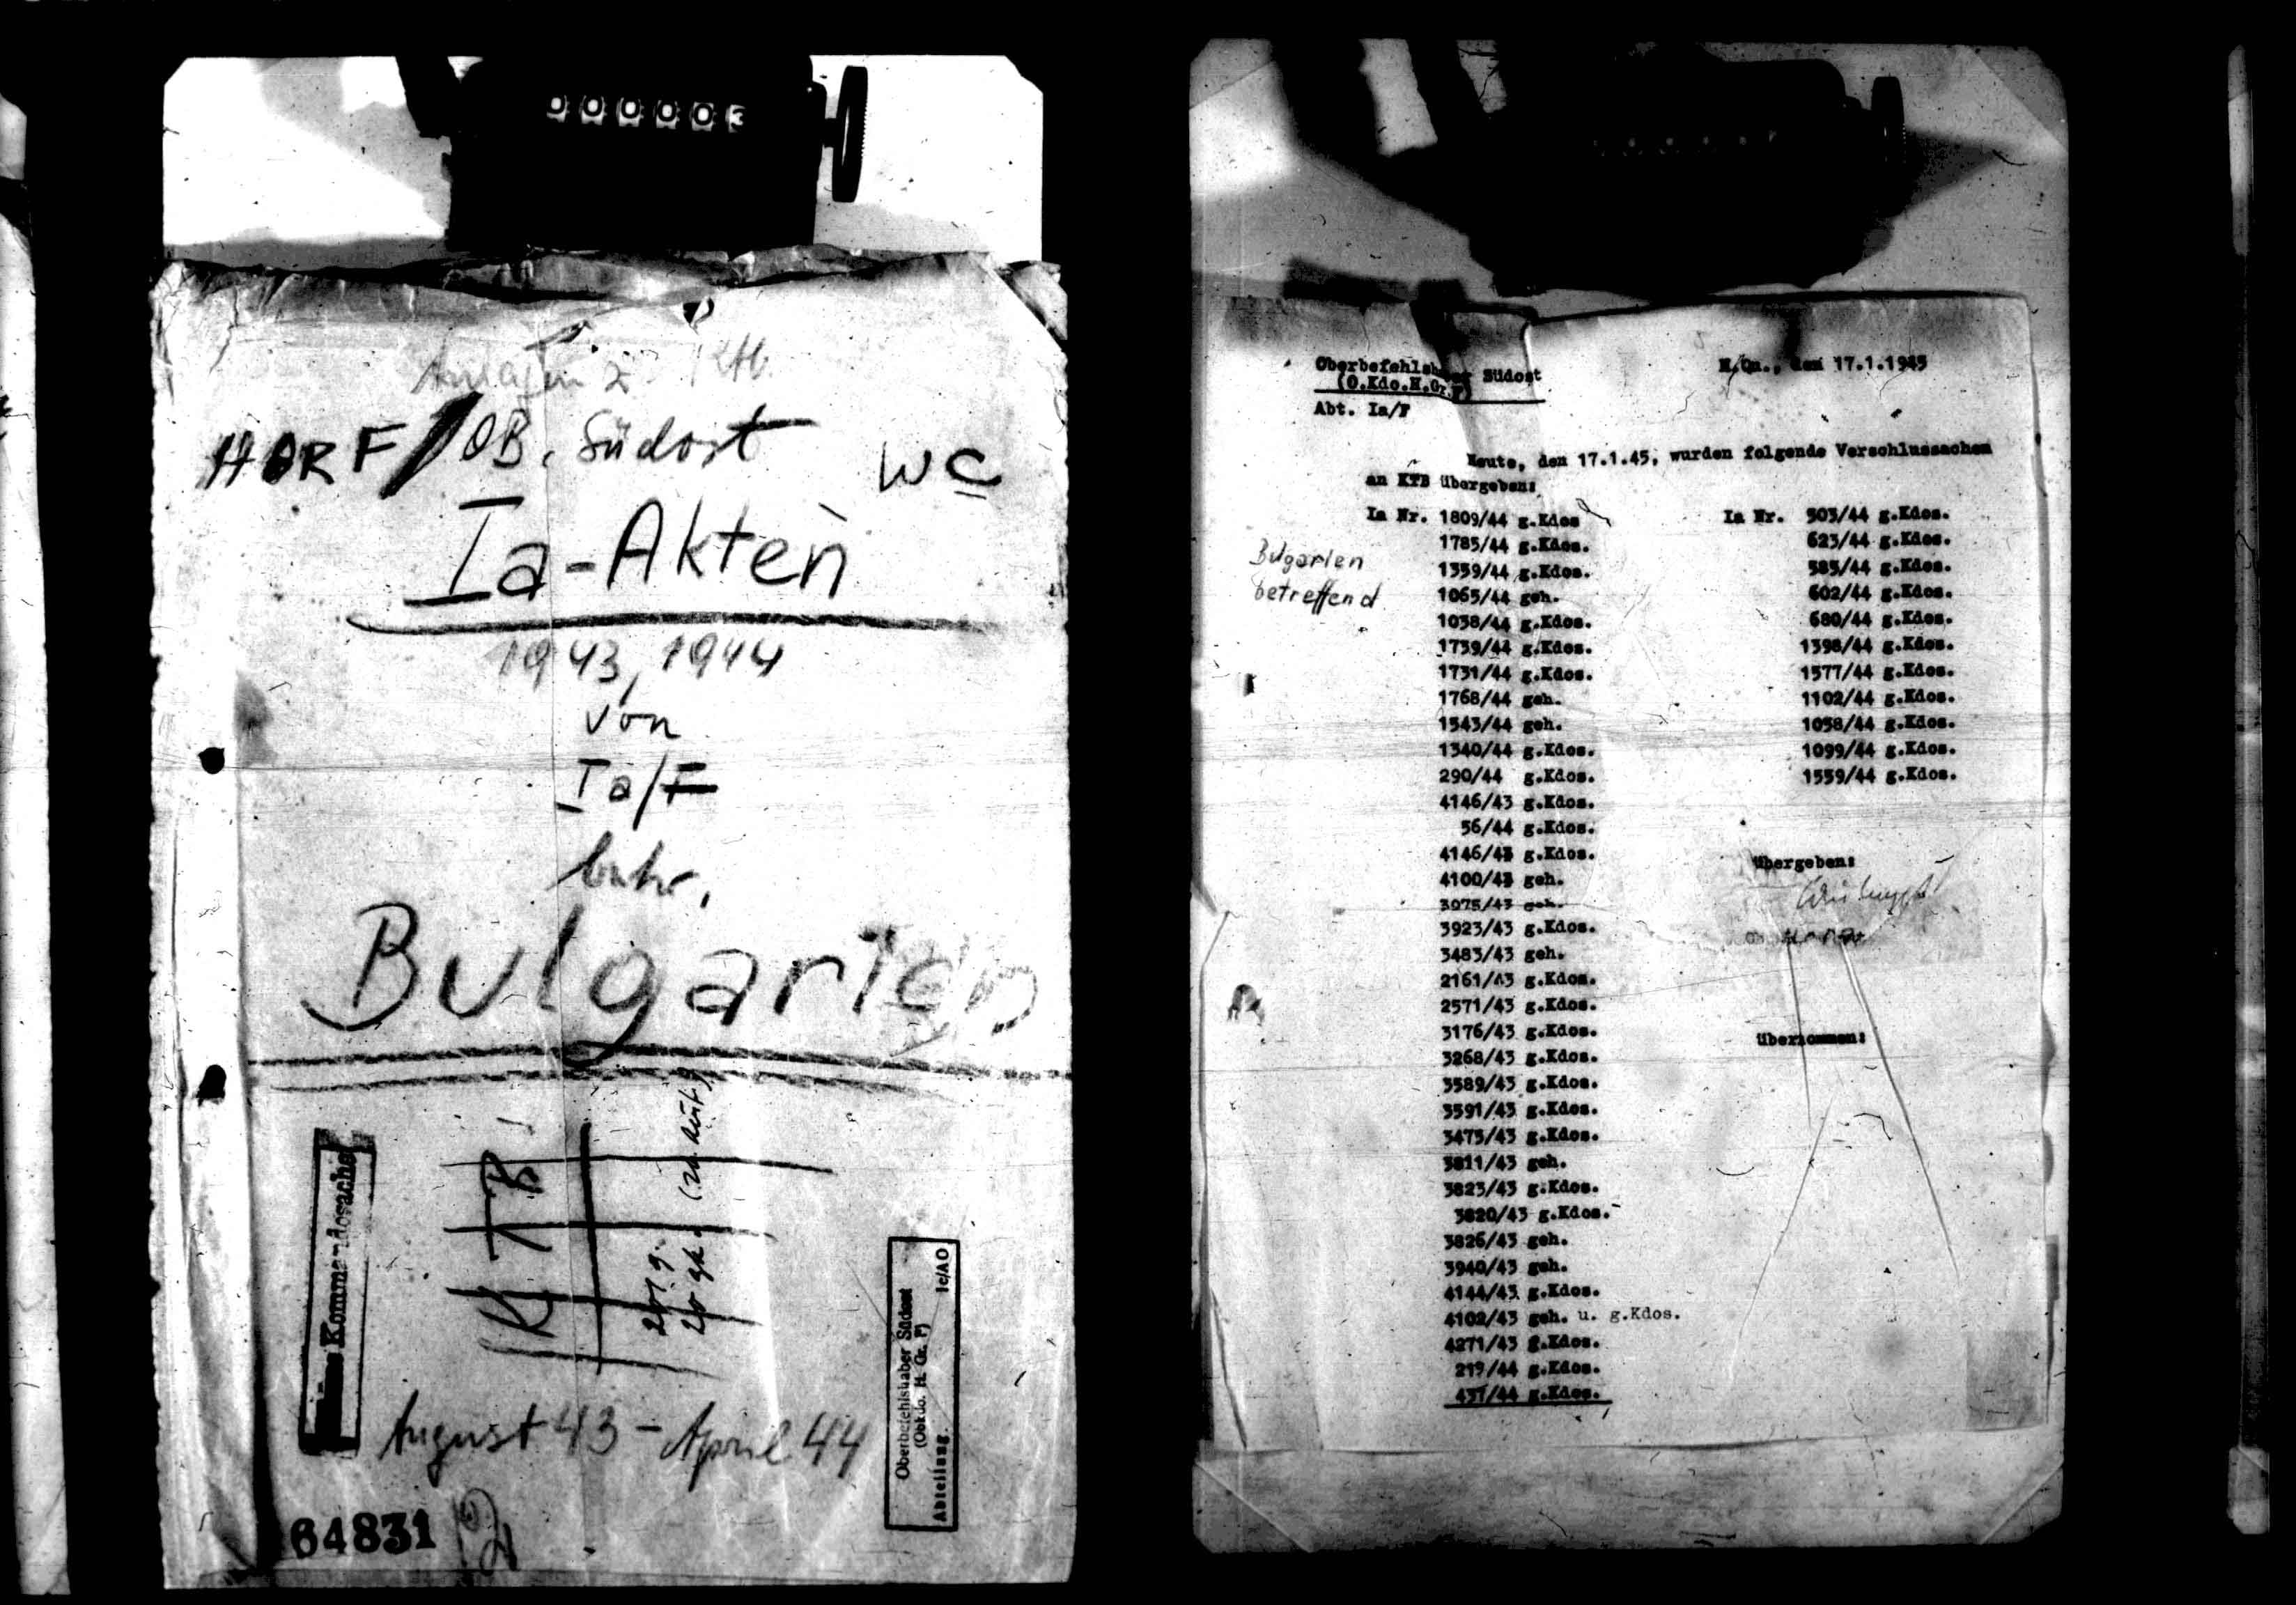 000003
Anlagen z. KTB.
HGR F / OB. Südost
WC
Ia-Akten
1943, 1944
von
Ia/F
betr.
Bulgarien
KTB
(zu Aut.)
Kommandosache
Oberbefehlshaber Südost
(Obkdo. H. Gr. F)
Abteilung Ic/AO
August 43 - April 44
64831
Oberbefehlshaber Südost
(O.Kdo.H.Gr.F)
H.Qu., den 17.1.1945
Abt. Ia/F
Heute, den 17.1.45, wurden folgende Verschlussachen
an KTB übergeben:
Bulgarien
betreffend
Ia Nr. 1809/44 g.Kdos
1785/44 g.Kdos.
1359/44 g.Kdos.
1065/44 geh.
1038/44 g.Kdos.
1739/44 g.Kdos.
1731/44 g.Kdos.
1768/44 geh.
1543/44 geh.
1340/44 g.Kdos.
290/44 g.Kdos.
4146/43 g.Kdos.
56/44 g.Kdos.
4146/43 g.Kdos.
4100/43 geh.
3975/43 geh.
3923/43 g.Kdos.
3483/43 geh.
2161/43 g.Kdos.
2571/43 g.Kdos.
3176/43 g.Kdos.
3268/43 g.Kdos.
3589/43 g.Kdos.
3591/43 g.Kdos.
3475/43 g.Kdos.
3811/43 geh.
3823/43 g.Kdos.
3820/43 g.Kdos.
3826/43 geh.
3940/43 geh.
4144/43 g.Kdos.
4102/43 geh. u. g.Kdos.
4271/43 g.Kdos.
219/44 g.Kdos.
431/44 g.Kdos.
Ia Nr. 503/44 g.Kdos.
623/44 g.Kdos.
585/44 g.Kdos.
602/44 g.Kdos.
680/44 g.Kdos.
1398/44 g.Kdos.
1577/44 g.Kdos.
1102/44 g.Kdos.
1058/44 g.Kdos.
1099/44 g.Kdos.
1559/44 g.Kdos.
übergeben:
übernommen: